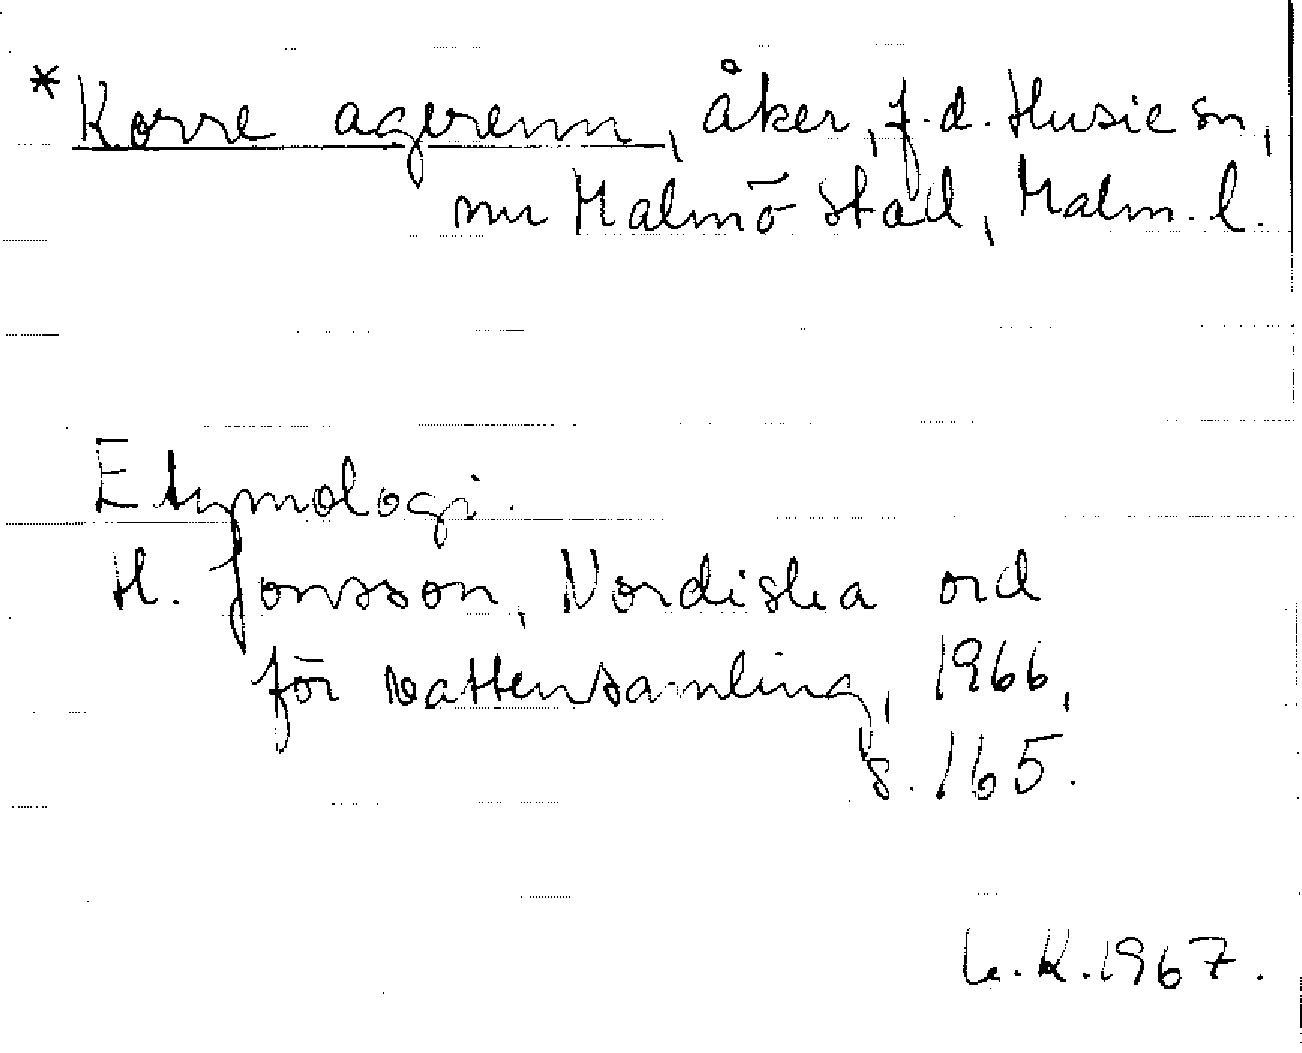 * Korre agerenn, åker, f.d. Husie sn,
nu Malmö stad, Malm. l.
Etymologi.
H. Jonsson, Nordiska ord
för vattensamling, 1966,
s. 165.
L.K. 1967.